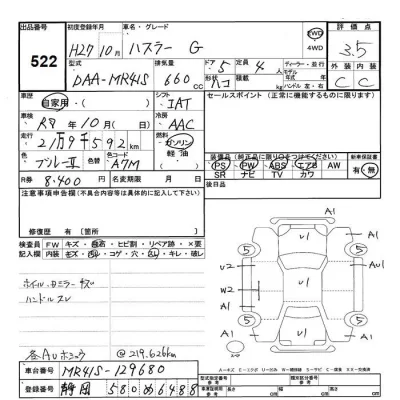 出品番号 522
初度登録年月 H27 10月
車名・グレード ハスラー G
2WD 4WD
評価点 3.5
型式 DAA-MR41S
排気量 660 cc
ドア 5
定員 4 人
形状 ハコ
積載 kg
ディーラー・並行
モデル 年式
ハンドル 左・右
外装 内装
C C
車歴 自家用・( )
シフト IAT
セールスポイント (正常に機能するものに限ります)
車検 R7年10月( )
冷房 AAC
走行 219592 km
燃料 ガソリン 軽油
色 ブルーII
色替
色No. A7M
R券 8.400 円
名変期限 月 日
装備品 (純正品に限り○をつけてください)
PS PW ABS エアB AW
SR ナビ TV カワ
新車保証書 有・無
後日品
注意事項申告欄(不具合内容は具体的に記入して下さい)
修復歴 有〔箇所 〕
検査員記入欄
FW キズ・飛石・ヒビ割・リペア跡・×要
内装 キズ・汚レ・コゲ・穴・スレ・キレ・破レ
ホイル、ミラー キズ
ハンドル スレ
各AUホシュウ @219.626km
A1
5 U1 5
U2 U1 AU1
W2
A1 A1
5 U1 5
A1
車台番号 MR41S-129680
登録番号 静岡 580 め 6488
A-キズ E-エクボ U-凹み W-補修跡 S-サビ C-腐食 X-要交換 XX-交換済
型式指定番号
類別区分番号
参考
長さ cm 幅 cm 高さ cm